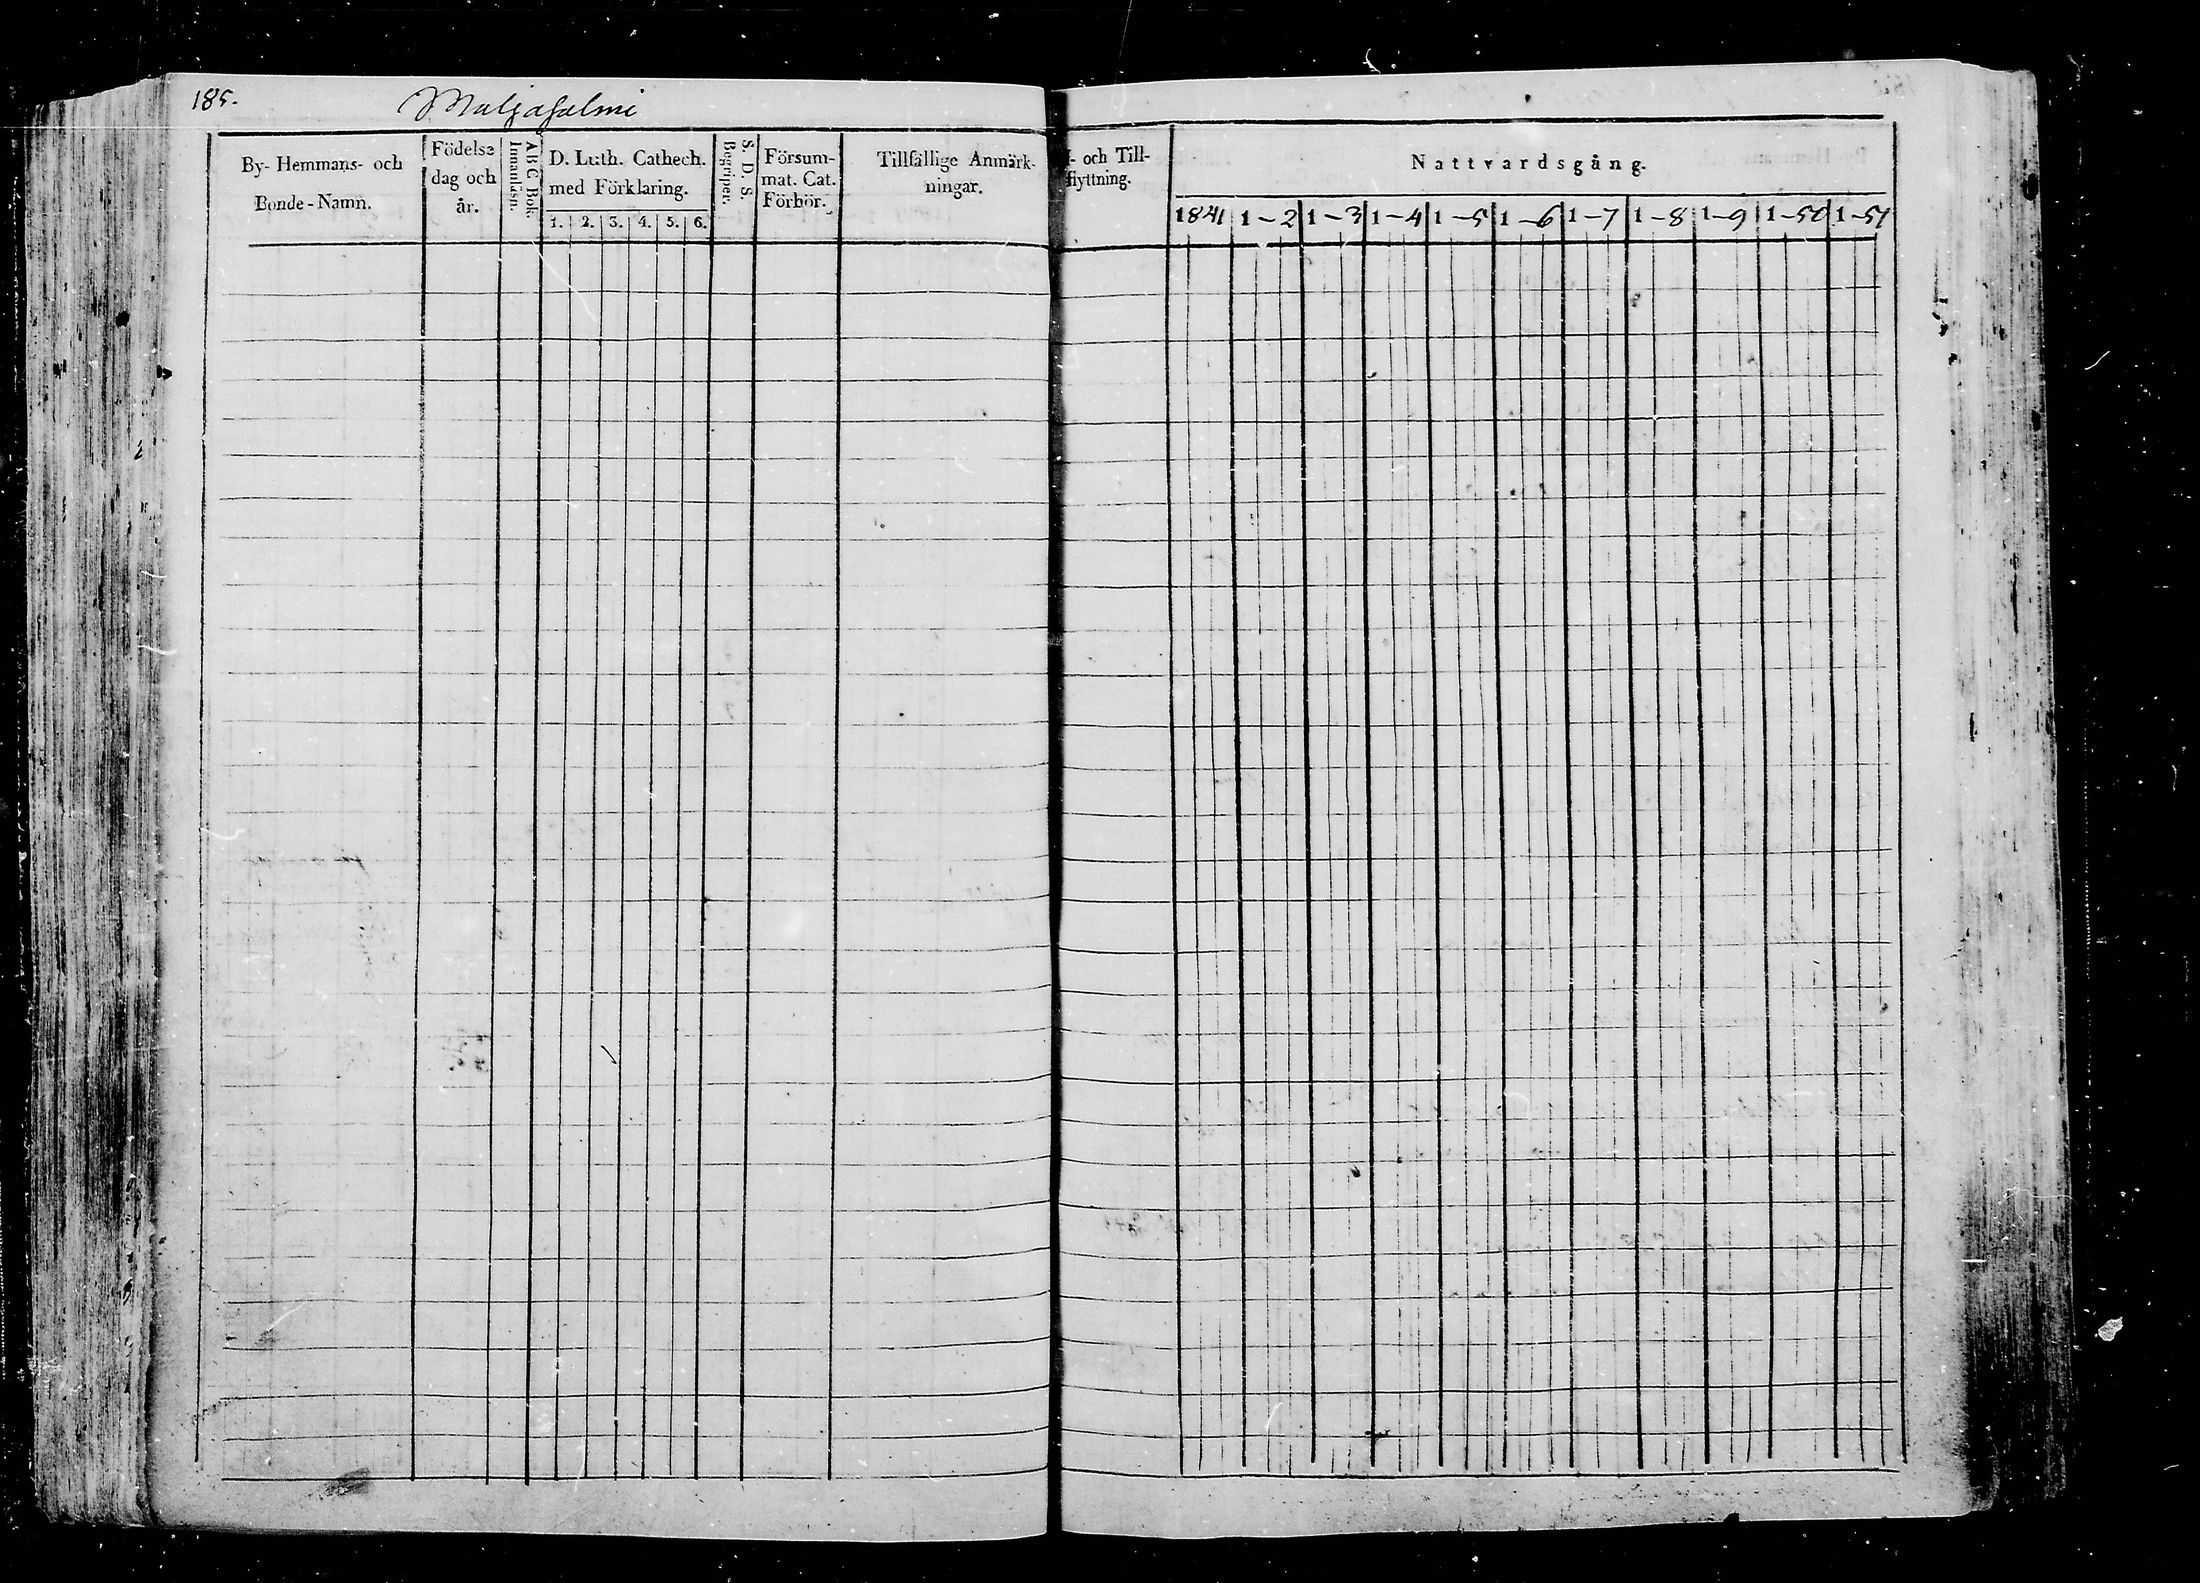 185.
Maljasalmi
By- Hemmans- och
Bonde-Namn.
Födelse
dag och
år.
A B C Bok.
Innanläsn.
D. Luth. Cathech.
med Förklaring.
1. 2. 3. 4. 5. 6.
S. D. S.
Begriper.
Försum-
mat. Cat.
Förhör.
Tillfällige Anmärk-
ningar.
- och Till-
flyttning.
Nattvardsgång.
1841 1-2 1-3 1-4 1-5 1-6 1-7 1-8 1-9 1-50 1-51